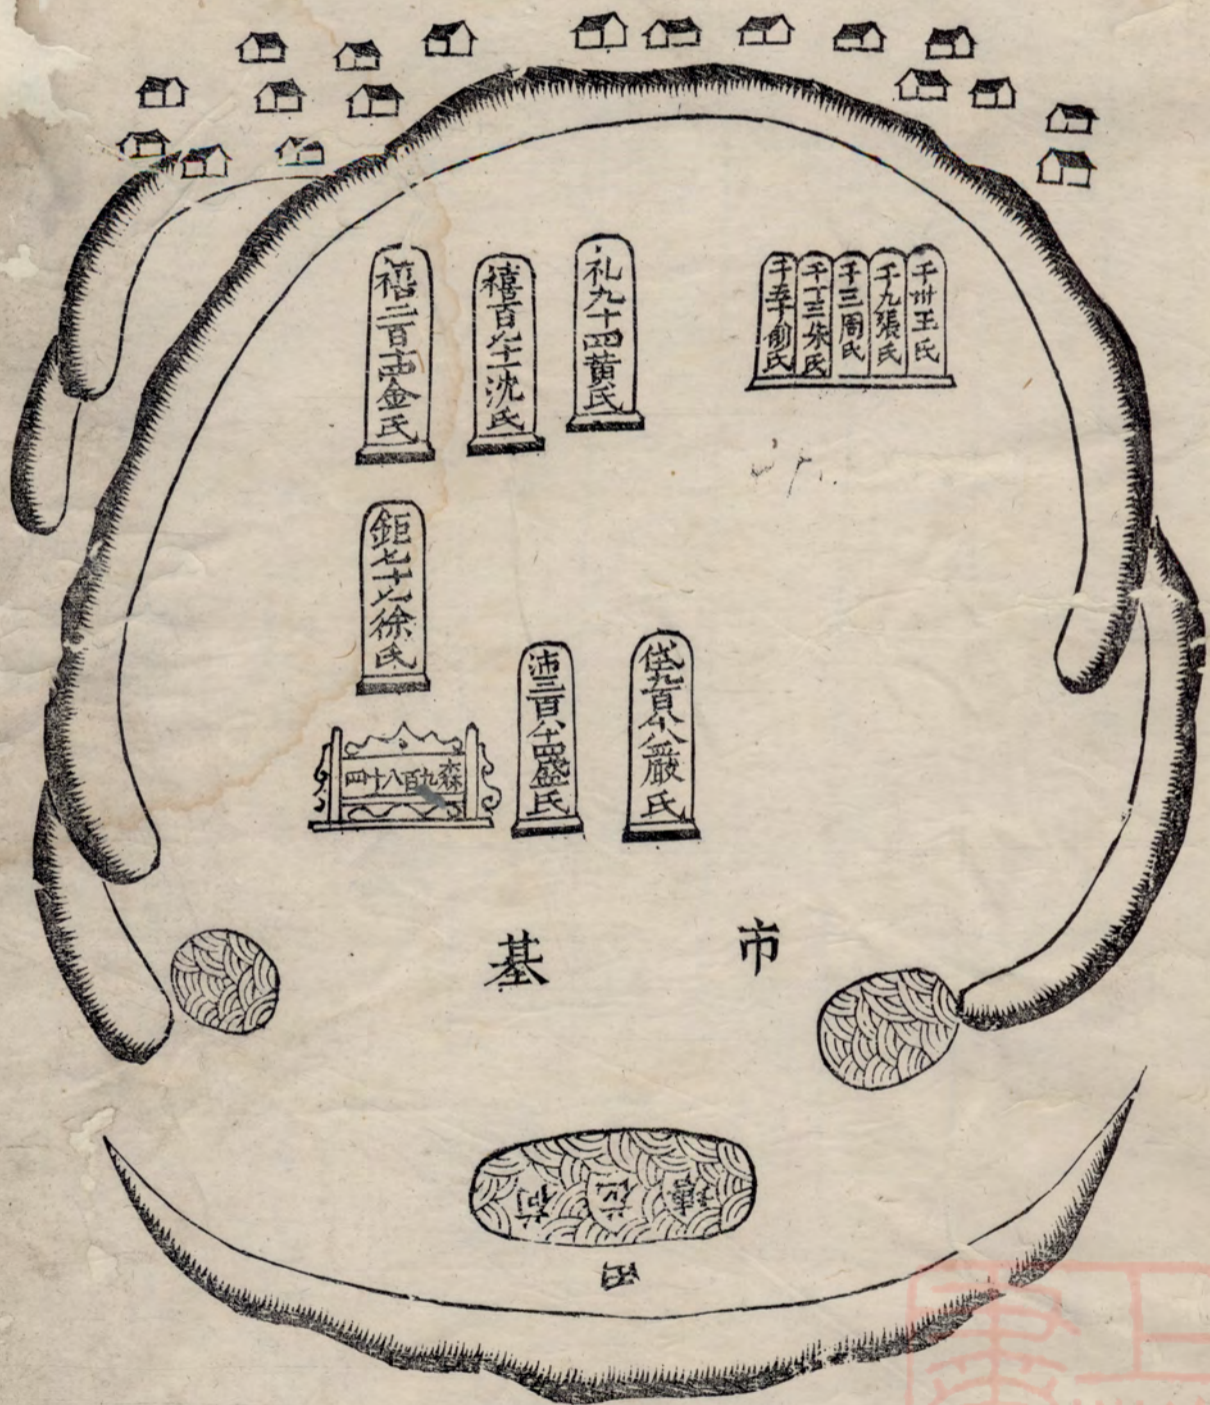 千卅王氏
千九張氏
千三周氏
千十三朱氏
千五十俞氏
礼九十四黄氏
禧百九十一沈氏
禧二百十四金氏
鉅七十七徐氏
九百八十八嚴氏
沛三百八十四盛氏
森九百八十四
市基
塘
荷
田